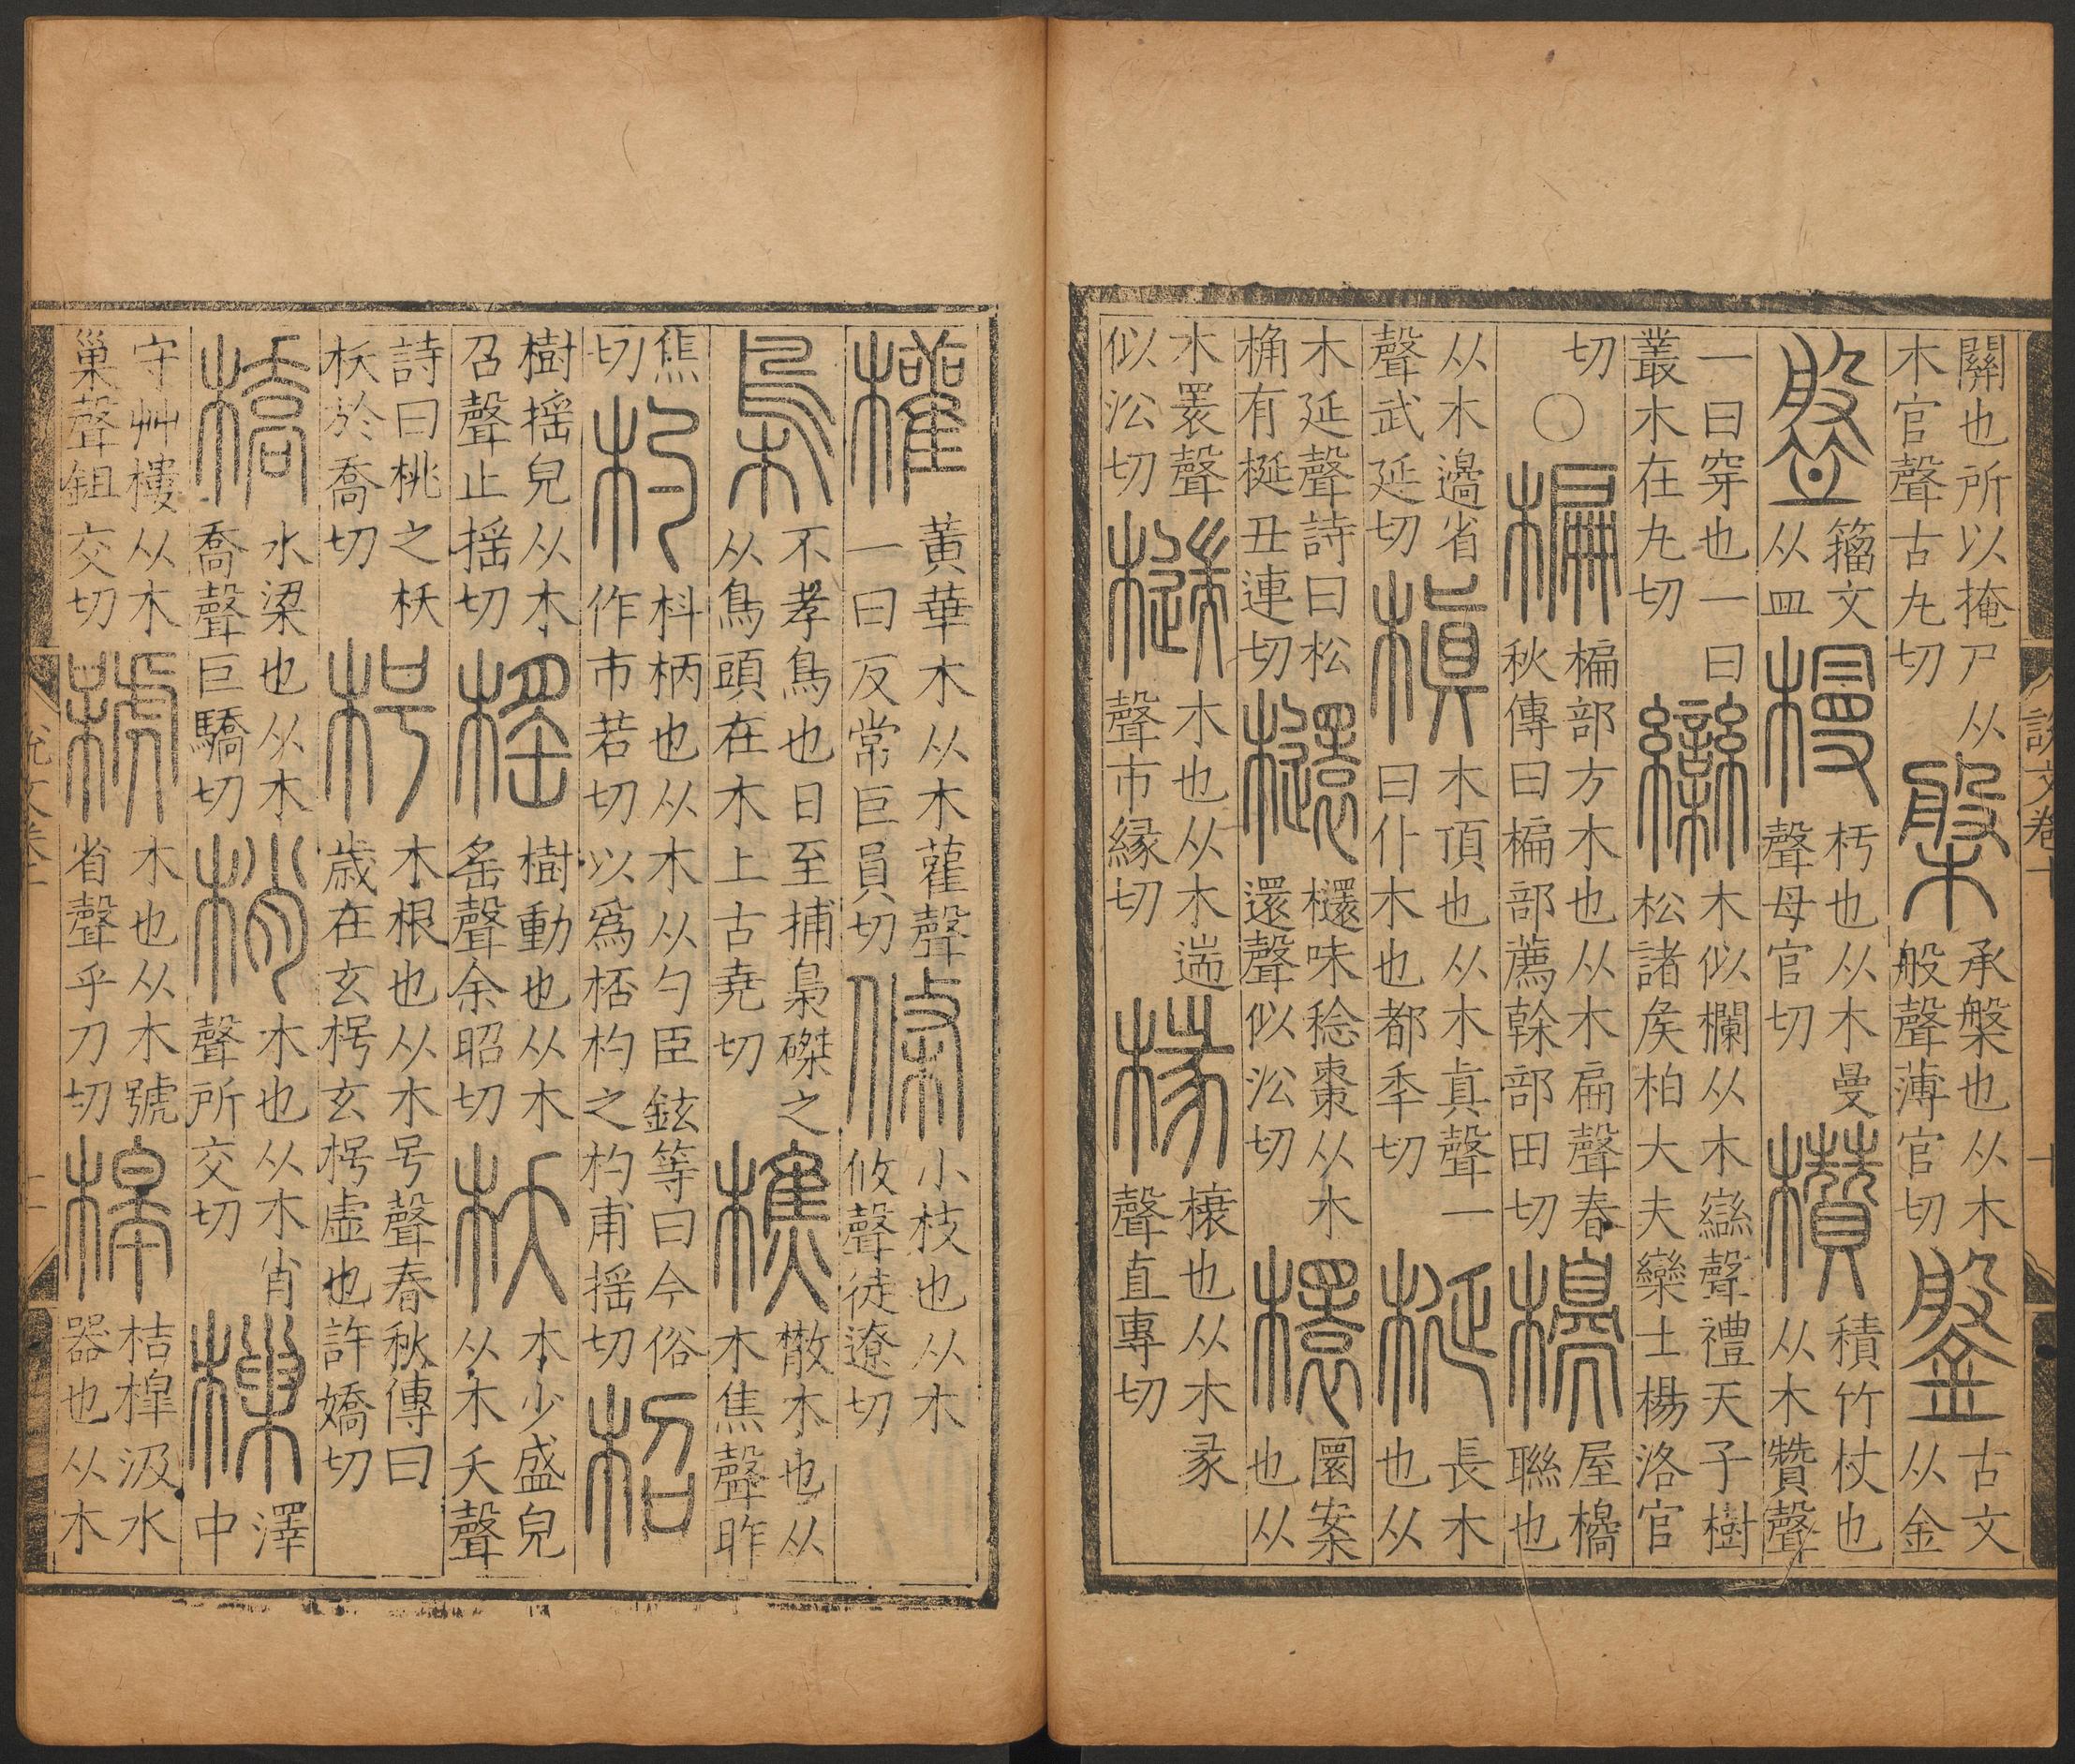 關也所以掩尸从
木官聲古丸切
槃
承槃也从木
般聲薄官切
鎜
古文
从金
盤
籀文
从皿
槾
杇也从木曼
聲母官切
欑
積竹杖也
从木贊聲
一曰穿也一曰
叢木在丸切
欒
木似欄从木䜌聲禮天子樹
松諸矦柏大夫欒士楊洛官
切
○
楄
楄部方木也从木扁聲春
秋傳曰楄部薦榦部田切
櫋
屋櫋
聯也
从木邉省
聲武延切
槙
木頂也从木真聲一
曰仆木也都秊切
梴
長木
也从
木延聲詩曰松
桷有梴丑連切
檈味稔棗从木
還聲似㳂切
檈
圜案
也从
木瞏聲
似㳂切
木也从木遄
聲市緣切
椽
榱也从木彖
聲直專切
說文卷十
十
權
黃華木从木雚聲
一曰反常巨員切
條
小枝也从木
攸聲徒遼切
梟
不孝鳥也日至捕梟磔之
从鳥頭在木上古堯切
樵
散木也从
木焦聲昨
焦
切
杓
枓柄也从木从勺臣鉉等曰今俗
作市若切以爲桮杓之杓甫摇切
柖
樹摇皃从木
召聲止摇切
榣
樹動也从木
䍃聲余昭切
枖
木少盛皃
从木夭聲
詩曰桃之枖
枖於喬切
枵
木根也从木号聲春秋傳曰
歳在玄枵玄枵虛也許嬌切
橋
水梁也从木
喬聲巨驕切
梢
木也从木肖
聲所交切
樔
澤
中
守艸樓从木
巢聲鉏交切
木也从木號
省聲乎刀切
槔
桔槔汲水
器也从木